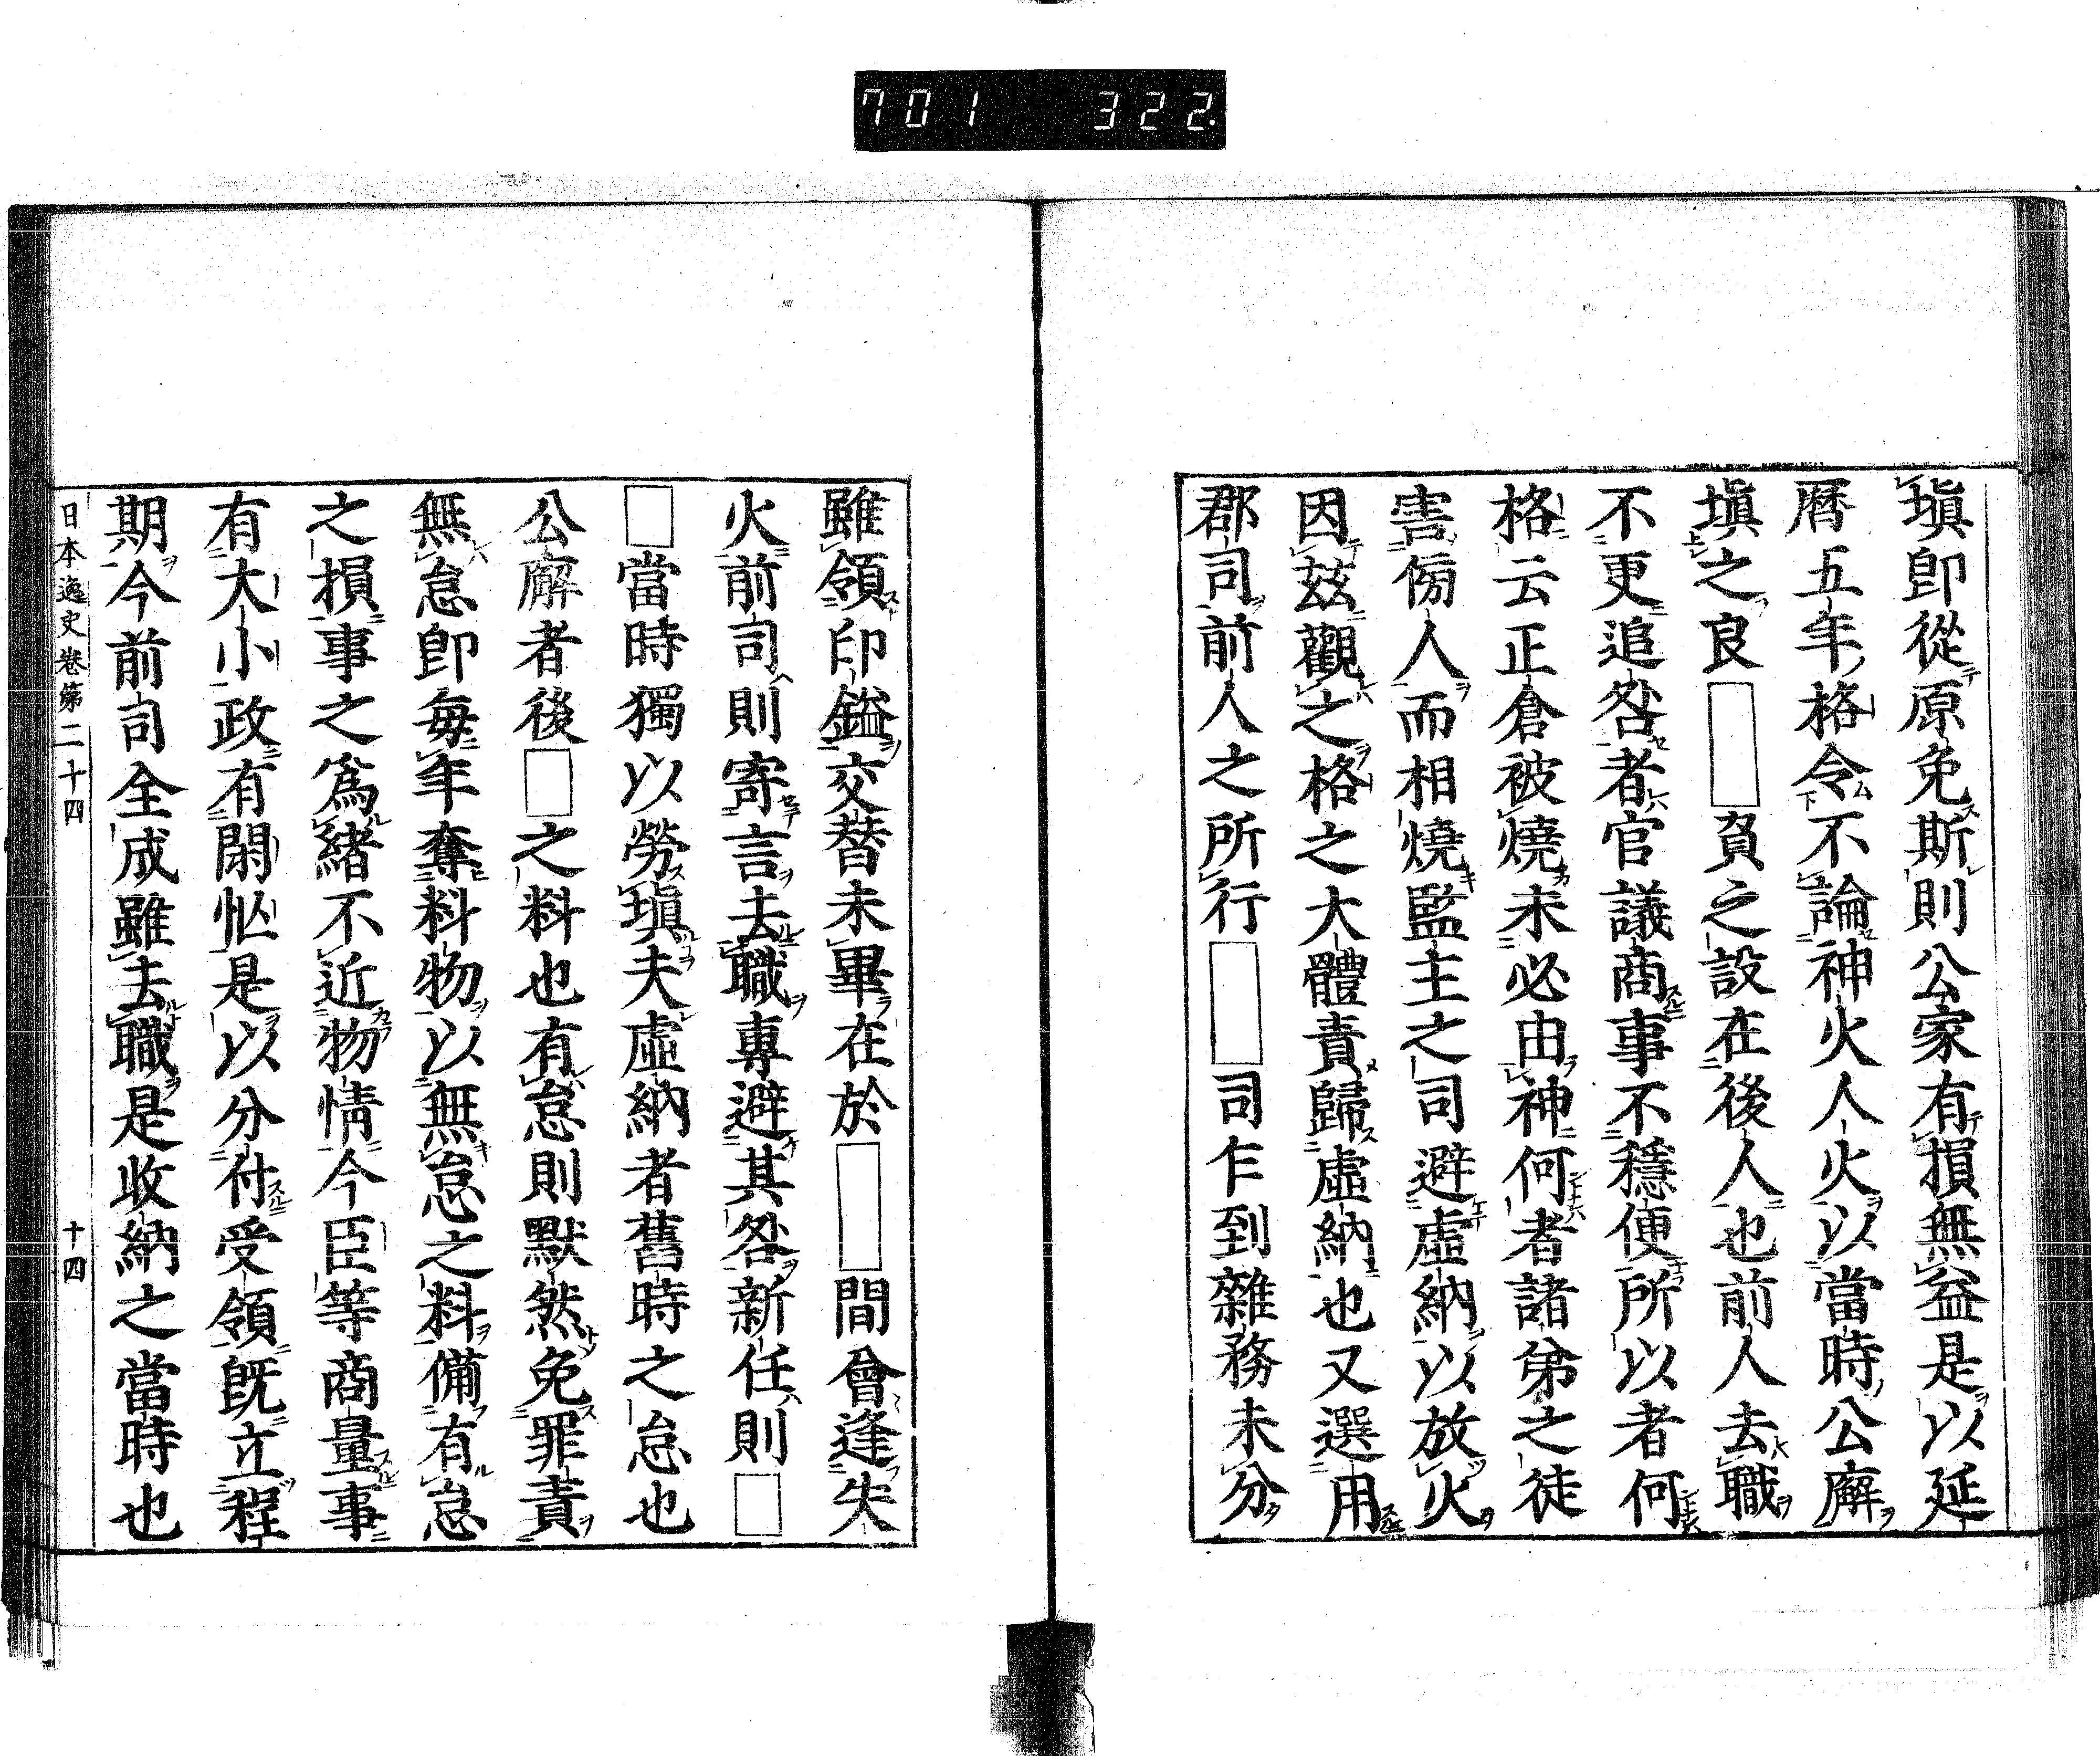 701 322.
塡卽從原免斯則公家有損無益是以延
曆五年格令不論神火人火以當時公廨
塡之良□負之設在後人也前人去職
不更追咎者官議商事不穩便所以者何
格云正倉被燒未必由神何者諸第之徒
害傍人而相燒監主之司避虛納以放火
因茲觀之格之大體責歸虛納也又選用
郡司前人之所行□司乍到雜務未分
雖領印鎰交替未畢在於□間會逢失
火前司則寄言去職專避其咎新任則□
□當時獨以勞塡夫虛納者舊時之怠也
公廨者後□之料也有怠則默然免罪責
無怠卽每年奪料物以無怠之料備有怠
之損事之爲緖不近物情今臣等商量事
有大小政有閑忙是以分付受領旣立程
期今前司全成雖去職是收納之當時也
日本逸史卷第二十四 十四